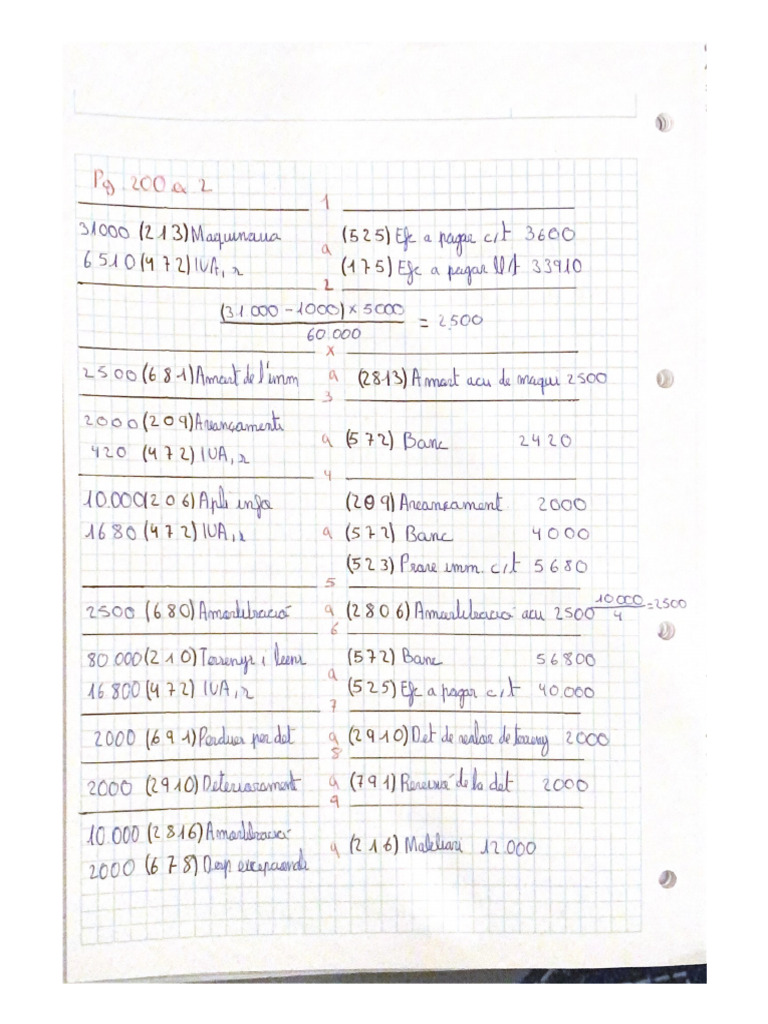 Pg. 200 ex 2
1
31000 (213) Maquinaria a (525) Efc a pagar c/t 3600
6510 (472) IVA, s (175) Efc a pagar ll/t 33910
2
(31.000 - 1000) x 5000
60.000
= 2500
x
2500 (681) Amort de l'imm a (2813) Amort acu de maqui 2500
3
2000 (209) Avançaments
420 (472) IVA, s a (572) Banc 2420
4
10.000 (206) Apli info (209) Avançament 2000
1680 (472) IVA, s a (572) Banc 4000
(523) Prove imm. c/t 5680
5
2500 (680) Amortització a (2806) Amortització acu 2500 10000 / 4 = 2500
6
80.000 (210) Terrenys i (572) Banc 56800
16800 (472) IVA, s a (525) Efc a pagar c/t 40.000
7
2000 (691) Pèrdues per det a (2910) Det de valor de terreny 2000
8
2000 (2910) Deteriorament a (791) Reversió de la det 2000
9
10.000 (2816) Amortització
2000 (678) Desp excepcionals a (216) Mobiliari 12.000